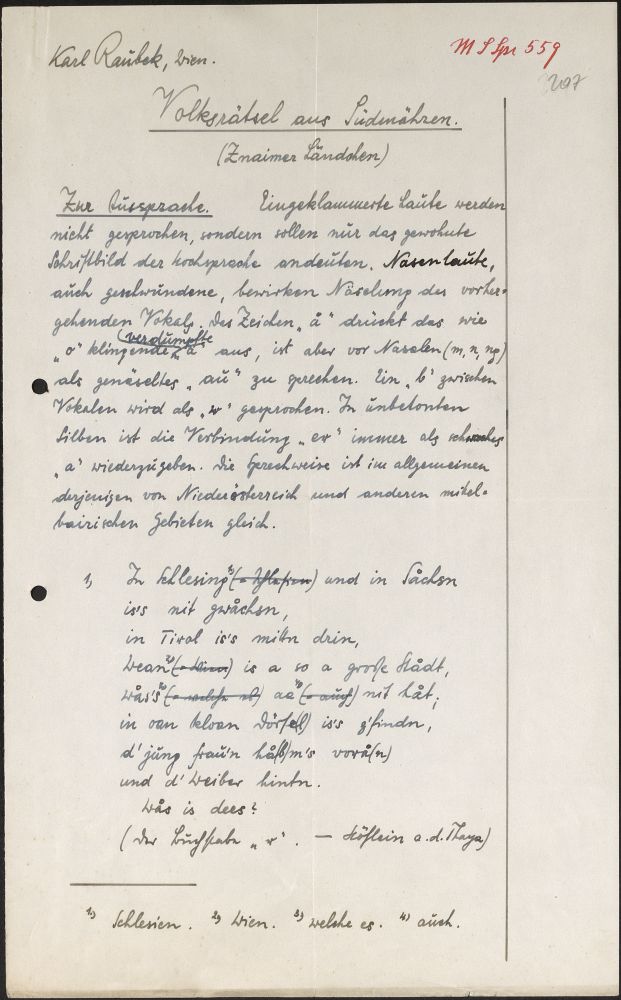 M S Spr 559
Karl Raubek, Wien.
Volksrätsel aus Südmähren.
(Znaimer Ländchen)
Zur Aussprache. Eingeklammerte Laute werden
nicht gesprochen, sondern sollen nur das gewohnte
Schriftbild der Hochsprache andeuten. Nasenlaute,
auch geschwundene, bewirken Näselung des vorher-
gehenden Vokals. Das Zeichen „å" drückt das wie
„o" klingende (verdumpfte) „a" aus, ist aber vor Nasalen (m, n, ng)
als genäseltes „au" zu sprechen. Ein „b" zwischen
Vokalen wird als „w" gesprochen. In unbetonten
Silben ist die Verbindung „er" immer als schwaches
„a" wiederzugeben. Die Sprechweise ist im allgemeinen
derjenigen von Niederösterreich und anderen mittel-
bairischen Gebieten gleich.
1, In Schlesing 1) (= Schlesien) und in Såchsn
is's nit gwåchsn,
in Tirol is's mittn drin,
Wean 2) (= Wien) is a so a große Stådt,
wås's 3) (= welche es) aa 4) (= auch) nit håt;
in oan kloan Dörfe(l) is's z'findn,
d' jung Frau'n hå(b)m's vorå(n)
und d' Weiber hintn.
Wås is dees?
(Der Buchstabe „r". — Höflein a. d. Thaya)
1) Schlesien. 2) Wien. 3) welche es. 4) auch.